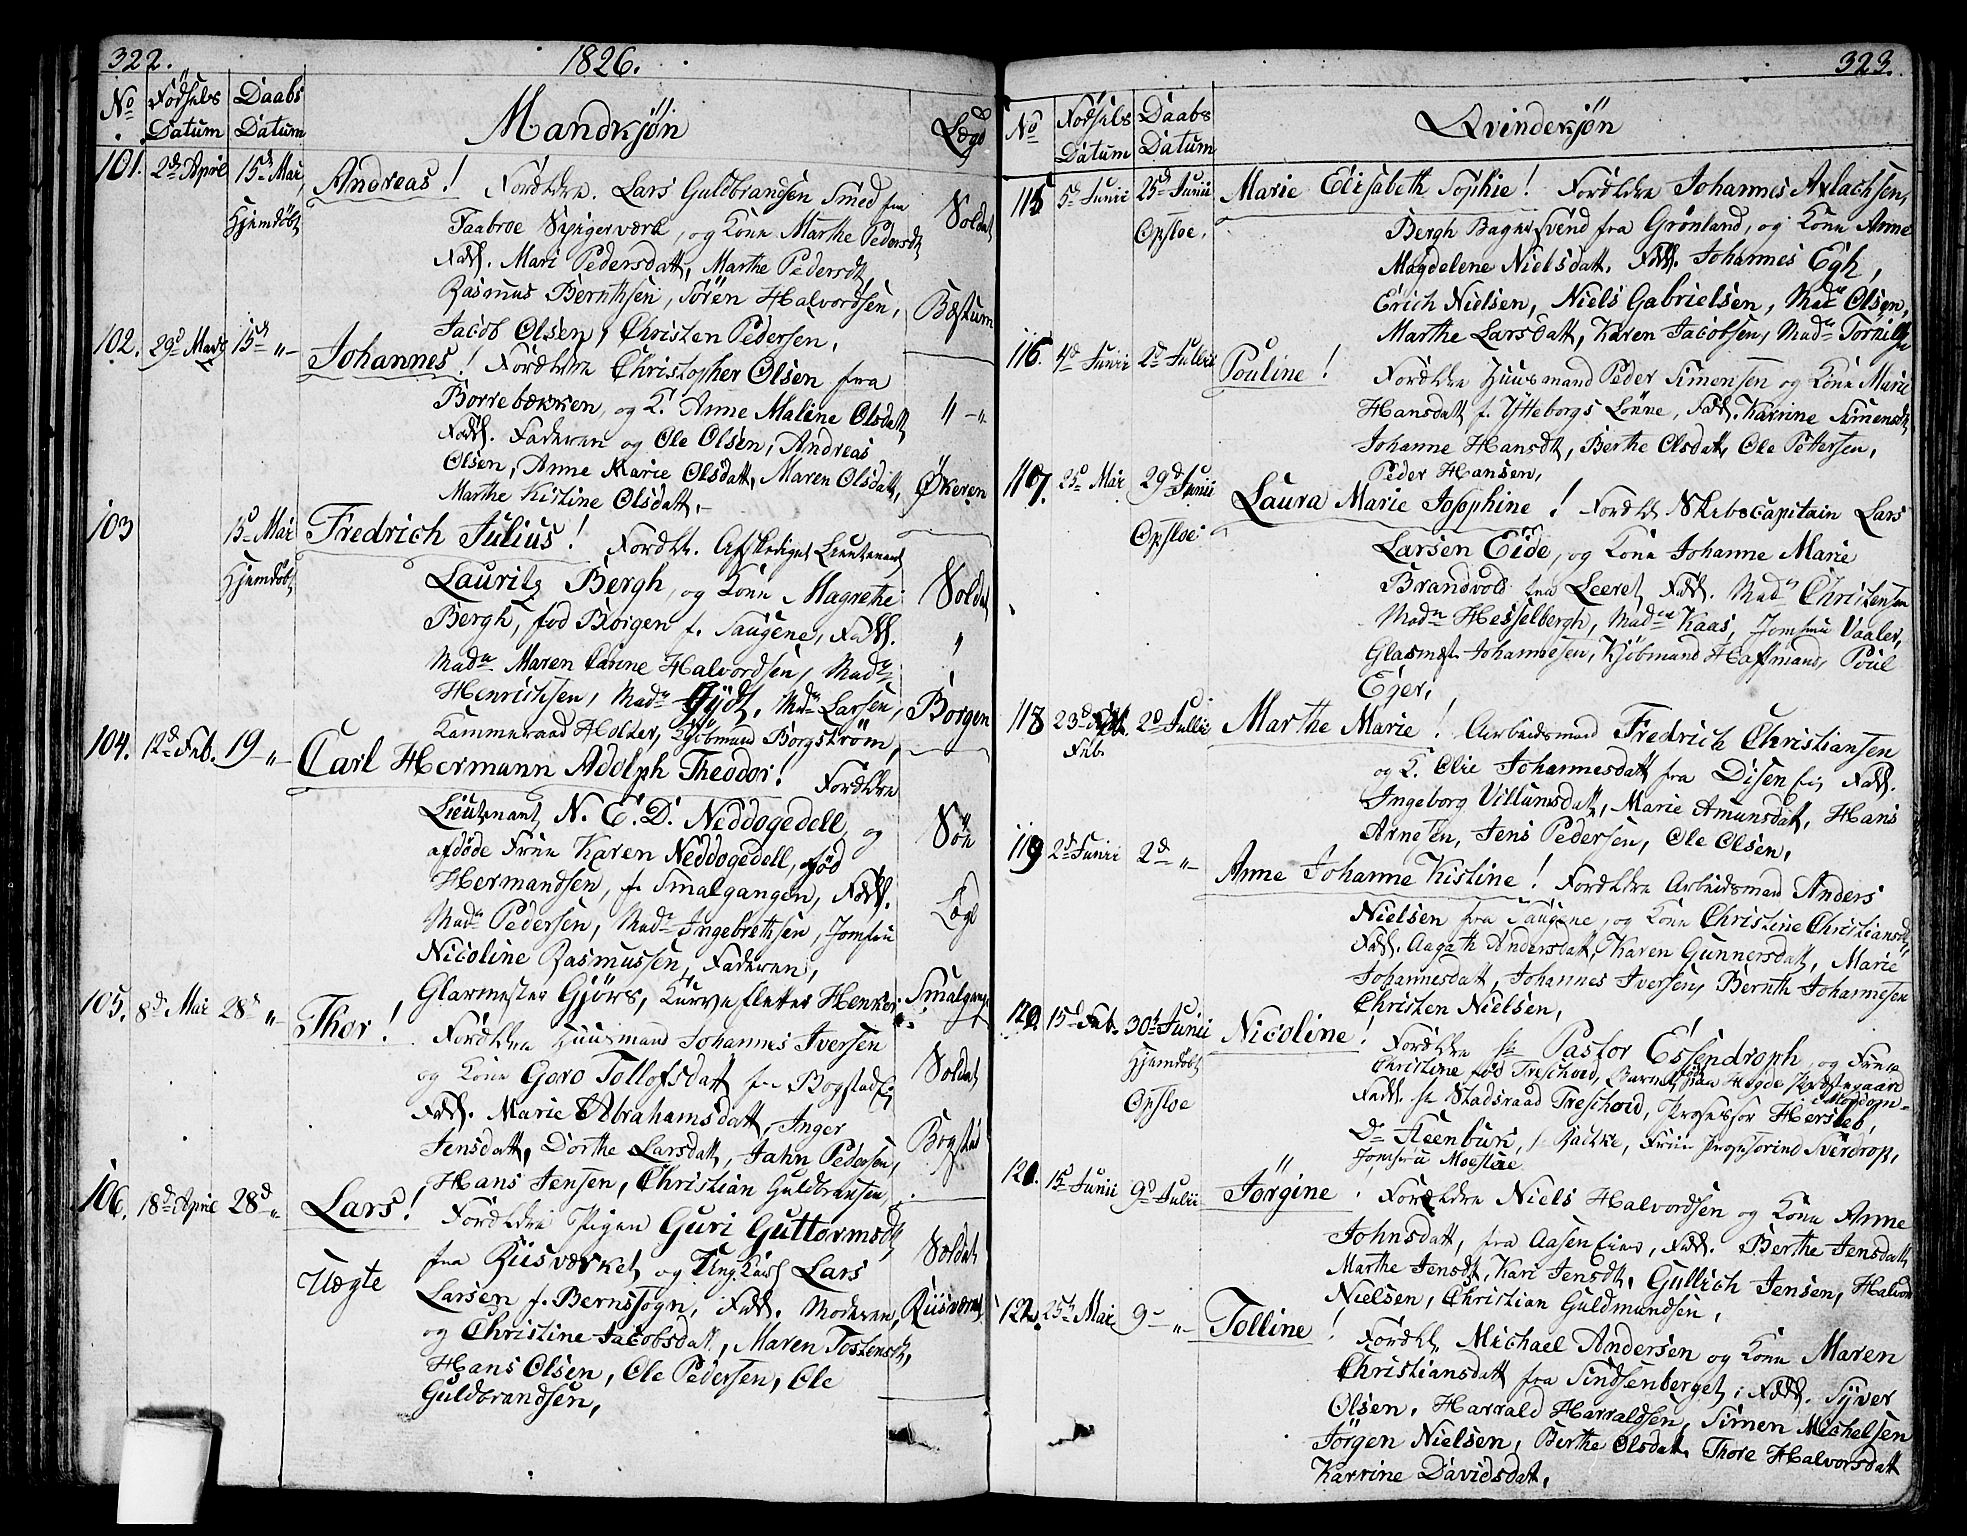 322. 1826.
No Födsels Datum Daabs Datum Mandkjön Lægd
101. 2d April 15de Mai, Hjemdöbt Andreas! Forældre. Lars Guldbrandsen Smed fra Soldat
Faabroe Spigerværk, og Kone Marthe Pedersdt
Fadd. Mari Pedersdatt, Marthe Pedersdt
Rasmus Bernthsen, Sören Halvordsen, Bæstum
Jacob Olsen, Christen Pedersen,
102. 29d Marts 15de "- Johannes! Forældre Christopher Olsen fra
Borrebækken, og K. Anne Malene Olsdatt, "-"
Fadd. Faderen og Ole Olsen, Andreas
Olsen, Anne Marie Olsdatt, Maren Olsdatt, Økeren
Marthe Kistine Olsdatt.-
103 15d Mai Hjemdöbt Fredrich Julius! Foreldr. Afskediget Lieutenant
Lauritz Bergh, og Kone Magrethe Soldat
Bergh, fød Borgen f. Saugene, Fadd. "
Madm Maren Carine Halvordsen, Madm
Henrichsen, Madm Gydt, Mdm Larsen, Borgen
Kammeraad Holter, Kjöbmand Borgström,
104. 12d Feb. 19-"- Carl Hermann Adolph Theodor! Forældre
Lieutenant N. E. D. Neddogedell og Söe
afdöde Frue Karen Neddogedell, fød
Hermandsen, fr Smalgangen, Fadd. Lægd
Madm Pedersen, Madm Ingebrethsen, Jomfru
Nicoline Rasmussen, Faderen,
Glarmester Gjörs, Kurvefletter Henker. Smalgang
105. 8d Mai 28d " Thor! Forældre Huusmand Johannes Iversen
og Kone Goro Tollofsdatt fra Bogstad Soldat
Fadd. Marie Abrahamsdatt, Inger
Jensdatt, Dorthe Larsdatt, Jahn Pedersen, Bogstad
Hans Jensen, Christian Guldbransen,
106. 18d April 28d " Lars! Forældre Pigen Guri Guttormsdt
Uægte fra Riisværket og Ungkarl Lars Soldat
Larsen f. Bernssogn, Fadd. Moderen, Riisværket
og Christine Jacobsdatt, Maren Tostensdt,
Hans Olsen, Ole Pedersen, Ole
Guldbrandsen,
323.
No Födsels Datum Daabs Datum Qvindekjön
115 5d Junii 25d Junii Opsloe, Marie Elisabeth Sophie! Forældre Johannes Axlachsen,
Bergh Bagersvend fra Grönland, og Kone Anne
Magdelene Nielsdatt. Fadd. Johannes Egh,
Erich Nielsen, Niels Gabrielsen, Madm Olsen,
Marthe Larsdatt, Karen Jacobsen, Madm
116. 4d Junii 2d Julii Pouline! Forældre Huusmand Peder Simensen og Kone Marie
Hansdatt f. Ytteborgs Lönne, Fadd. Karrine Simensdt
Johanne Hansdt, Berthe Olsdatt, Ole Pettersen,
Peder Hansen,
117. 25d Mai 29d Junii Opsloe Laura Marie Josephine! Foreldr Skibscapitain Lars
Larsen Eide, og Kone Johanne Marie
Brandvold fra Leeret, Fadd. Madm Christensen
Madm Hesselbergh, Madm Kaas, Jomfru Vaaler,
Glasmest. Johannesen, Kjöbmand Haffmans, Poul
Eger,
118 23d Feb. 2d Julii Marthe Marie! Arbeidsmand Fredrich Christiansen
og K. Olie Johannesdatt fra Disen Eie, Fadd.
Ingeborg Villumsdatt, Marie Amunsdatt, Hans
Arnesen, Jens Pedersen, Ole Olsen,
119 2d Junii 2d "- Anne Johanne Kistine! Forældre Arbeidsmand Anders
Nielsen fra Saugene, og Kone Christine Christiansdt,
Fadd. Aagath Andersdatt, Karen Gunnersdatt, Marie
Johannesdatt, Johannes Iversen, Bernth Johannesen
Christen Nielsen,
120. 15d Feb. 30t Junii Hjemdöbt Opsloe Nicoline! Forældre Hr Pastor Essendroph, og Frue
Christine fød Treschoid, Barnet født paa Præstegaard
Fadd. Hr Stadsraad Treschoid, Professor Hersleb,
Dr Steenbuk, Hr Frue Professorind Sverdrop,
Jomfru Moestue
121. 15d Junii 9d Julii Jörgine. Forældre Niels Halvordsen og Kone Anne
Johnsdatt, fra Aasen Eier, Fadd. Berthe Jensdatt
Marthe Jensdt, Kari Jensdt, Gullich Jensen, Halvor
Nielsen, Christian Guldmundsen,
122. 25de Mai 9-"- Tolline! Forældr Michael Andersen og Kone Maren
Christiansdatt fra Sindsenberget, Fadd. Syver
Olsen, Harrald Harraldsen, Simen Michelsen
Jörgen Nielsen, Berthe Olsdatt, Thore Halvorsdatt
Karrine Davidsdat,